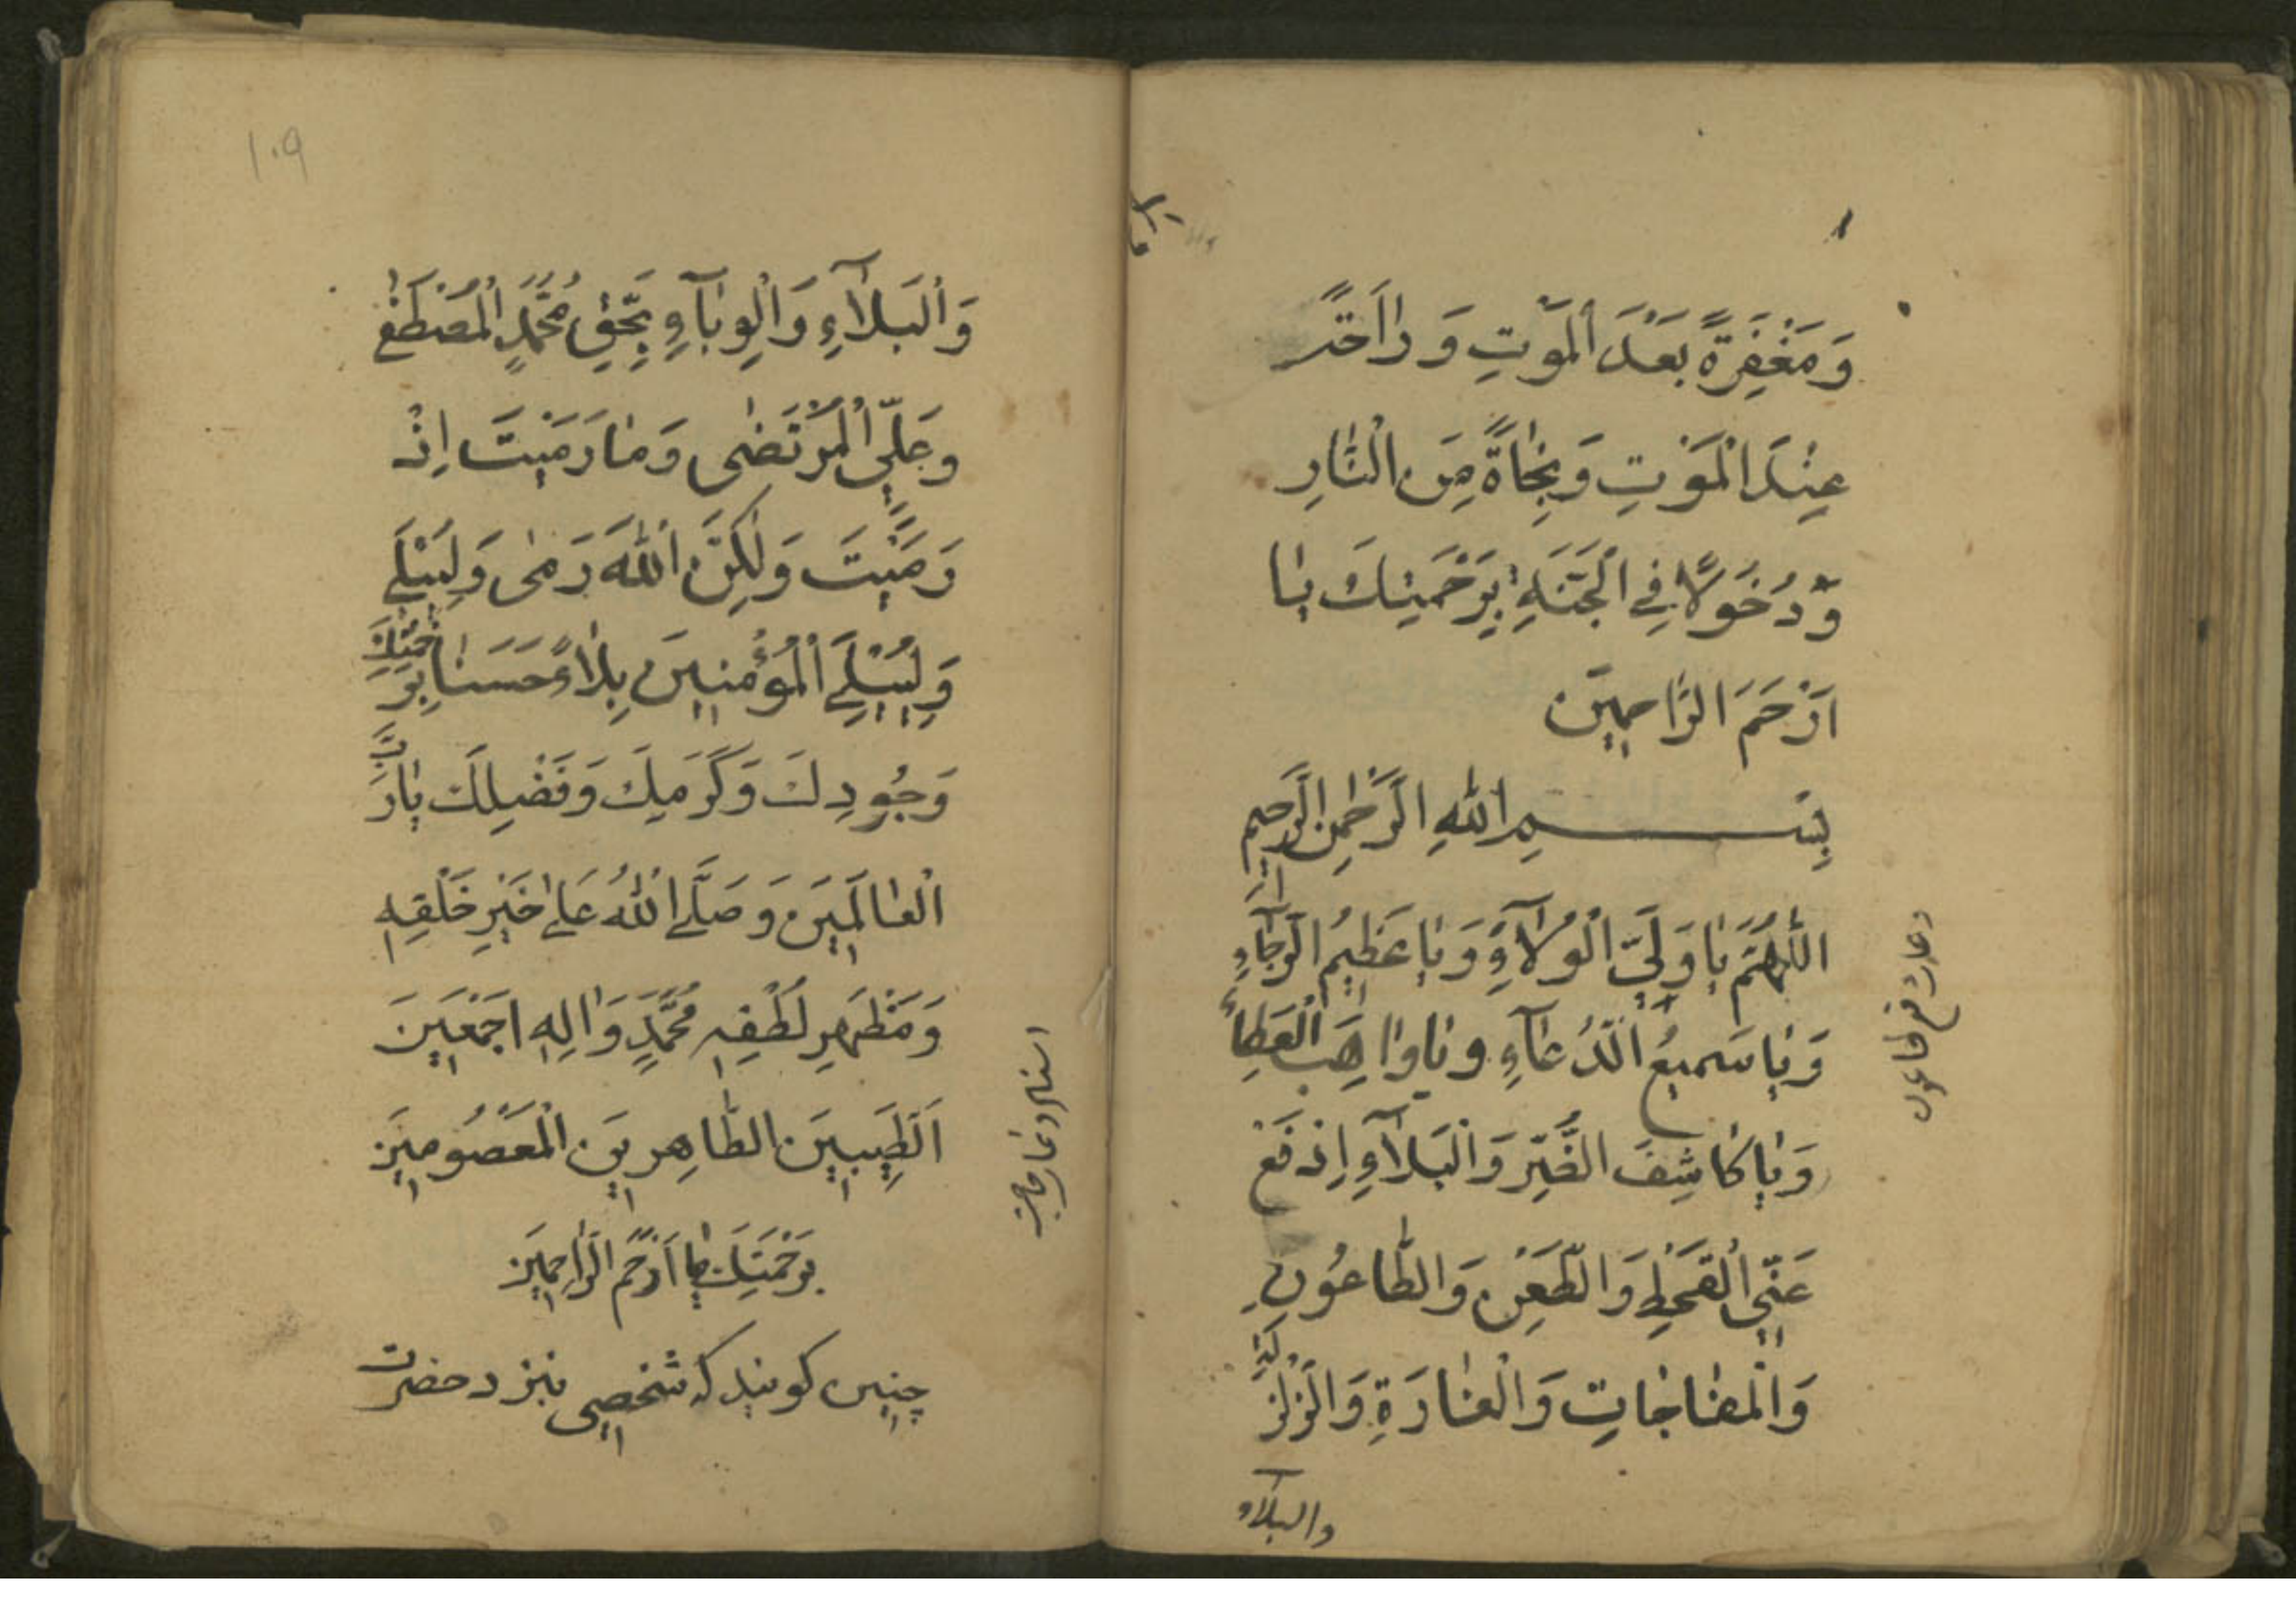 وَمَغْفِرَةً بَعْدَ الْمَوْتِ وَ رٰاحَةً
عِنْدَ الْمَوْتِ وَ نِجٰاةً مِنَ النّٰارِ
وَّ دُخُولًا فِي الْجَنَّةِ بِرَحْمَتِكَ يٰا
اَرْحَمَ الرّٰاحِمِيْنَ
بِسْمِ اللّٰهِ الرَّحْمٰنِ الرَّحِيمِ
اللّٰهُمَّ يٰا وَلِيَّ الْوُلَآءِ وَ يٰا عَظِيْمُ الرَّجٰآءِ
وَ يٰا سَمِيعُ الدُّعٰآءِ و يٰا وٰاهِبَ الْعَطٰاءِ
وَ يٰا كٰاشِفَ الضُّرِّ وَالْبَلَآءِ اِدْفَعْ
عَنِّي الْقَحْطِ وَالطَّعْنِ وَالطّٰاعُونِ
وَالْمفٰاجٰاتِ وَالْغٰارَةِ وَالزَّلْزَلَةِ
والبلآء
دعاء دفع طاعون
١٠٩
وَالْبَلَآءِ وَالْوِبٰآءِ بِحَّقِ مُحَمَّدٍ الْمُصْطَفٰى
وَعَلِيٍّ الْمُرْتَضٰى وَمٰا رَمَيْتَ اِذْ
رَمَيْتَ وَلٰكِنَّ اللّٰهَ رَمٰى وَلِيُبْلِيَ
وَلِيُبْلِيَ الْمُؤْمِنِيْنَ بِلٰاءً حَسَنٰا بِرَحْمَتِكَ
وَجُودِكَ وَ كَرَمِكَ وَ فَضْلِكَ يٰا رَبَّ
الْعٰالَمِيْنَ وَ صَلَّى اللّٰهُ عَلٰى خَيْرِ خَلْقِهِ
وَ مَظْهَرِ لُطْفِهِ مُحَمَّدٍ وَ اٰلِهِ اَجْمَعِيْنَ
اَلطَّيِّبِيْنَ الطّٰاهِرِيْنَ الْمَعْصُومِيْنَ
بِرَحْمَتِكَ يٰا اَرْحَمَ الرّٰاحِمِيْنَ
چنين كويند كه شخصى بنزد حضرت